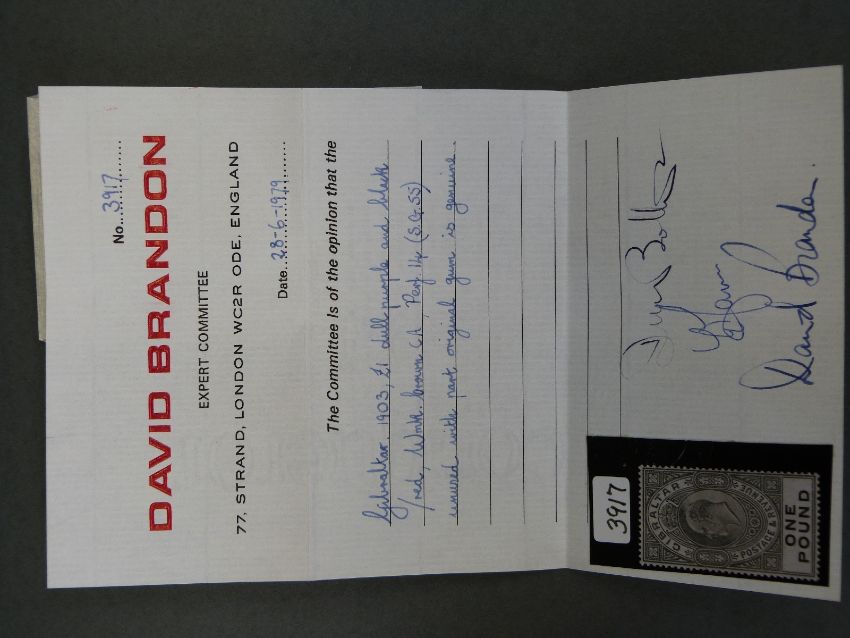 No. 3917
DAVID BRANDON
EXPERT COMMITTEE
77, STRAND, LONDON WC2R ODE, ENGLAND
Date. 28-6-1979
The Committee is of the opinion that the
Gibraltar, 1903, £1 dull purple and black
/red, Wmk. Crown CA, Perf 14 (S.G.55)
unused with part original gum is genuine.
David Brandon.
3917
GIBRALTAR
POSTAGE & REVENUE
ONE
POUND